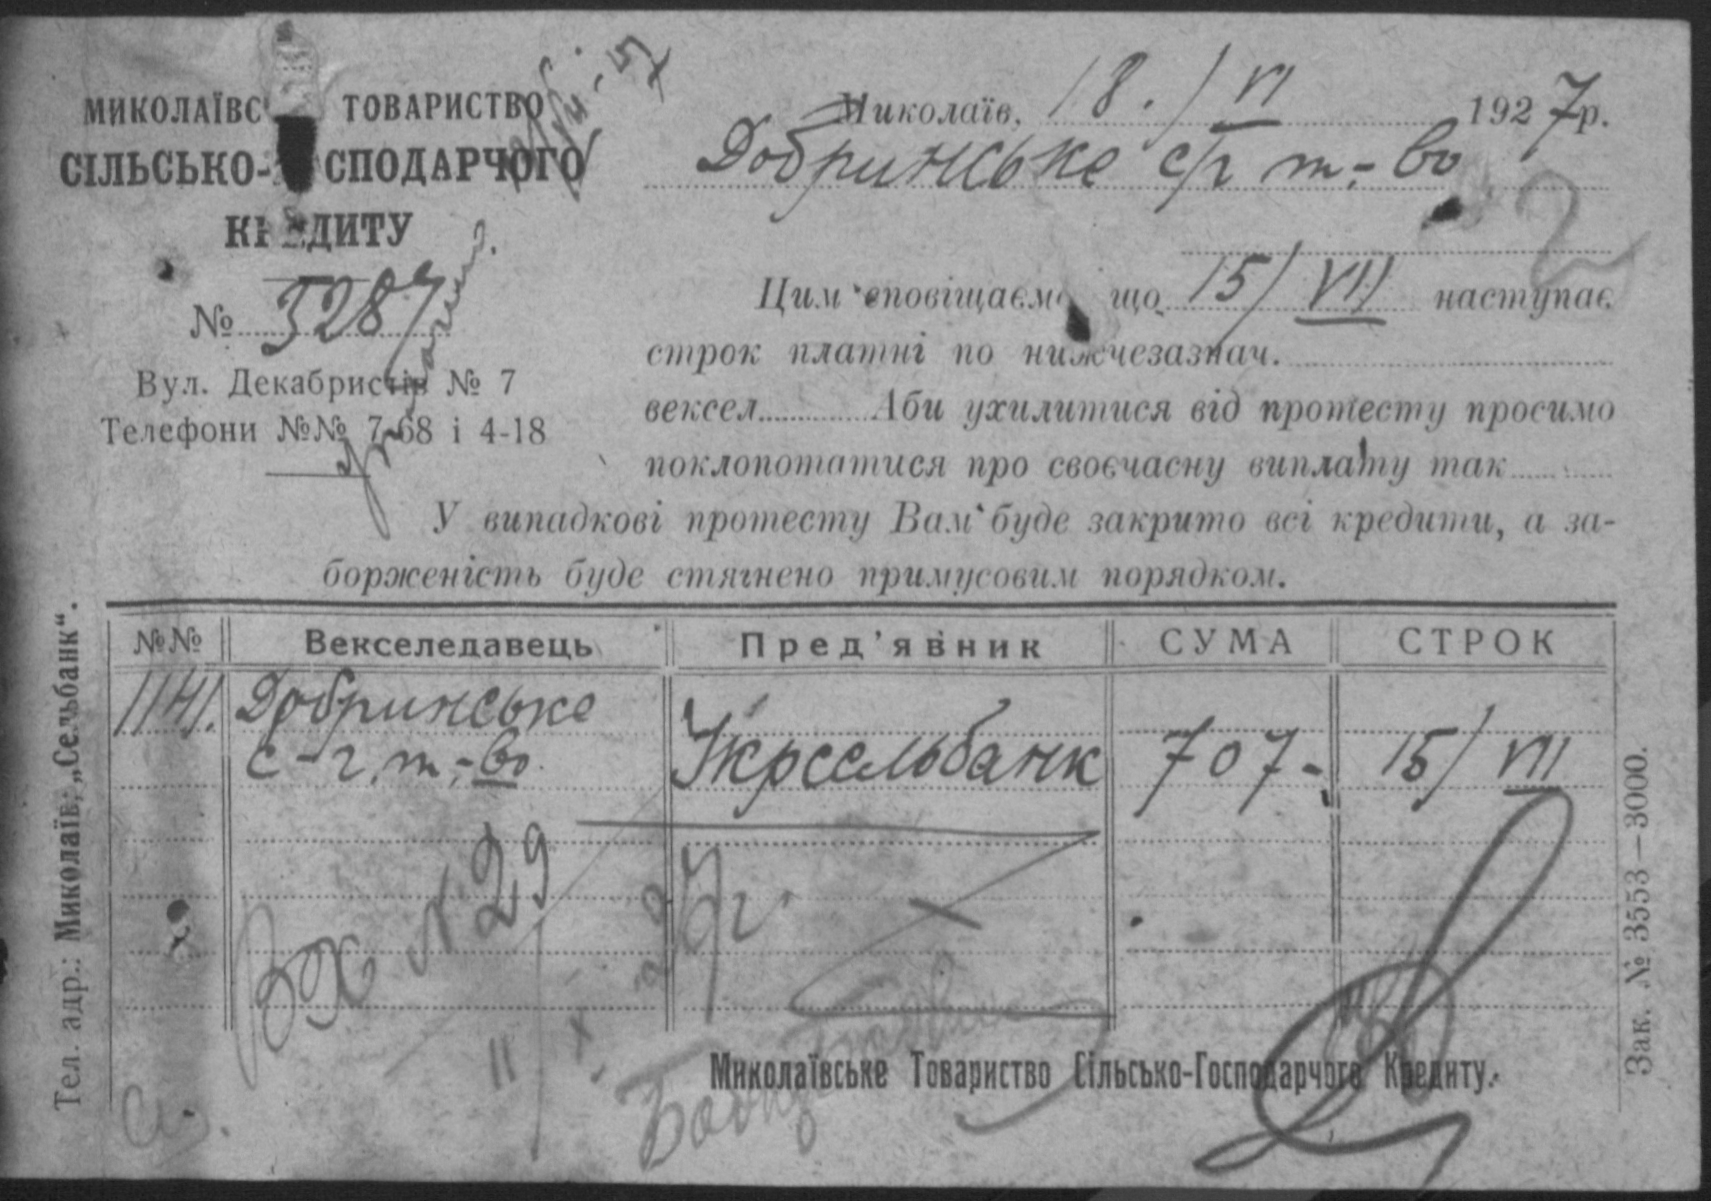 МИКОЛАЇВС ТОВАРИСТВО
СІЛЬСЬКО- СПОДАРЧОГО
КРЕДИТУ
№ 5287
Вул. Декабристів № 7
Телефони №№ 7-68 і 4-18
Миколаїв, 18/VI 1927р.
Добринське с/г т-во
2
Цим оповіщаємо що 15/VII наступає
строк платні по нижчезазнач.
вексел......... Аби ухилитися від протесту просимо
поклопотатися про своєчасну виплату так......
У випадкові протесту Вам буде закрито всі кредити, а за-
борженість буде стягнено примусовим порядком.
№№ Векселедавець Пред'явник СУМА СТРОК
1141. Добринське
с-г. т-во Укрсельбанк 707- 15/VII
Вх N 29
11/X 27 г.
Миколаївське Товариство Сільсько-Господарчого Кредиту.
Тел. адр.: Миколаїв, „Сельбанк“.
Зак. № 3553—3000.